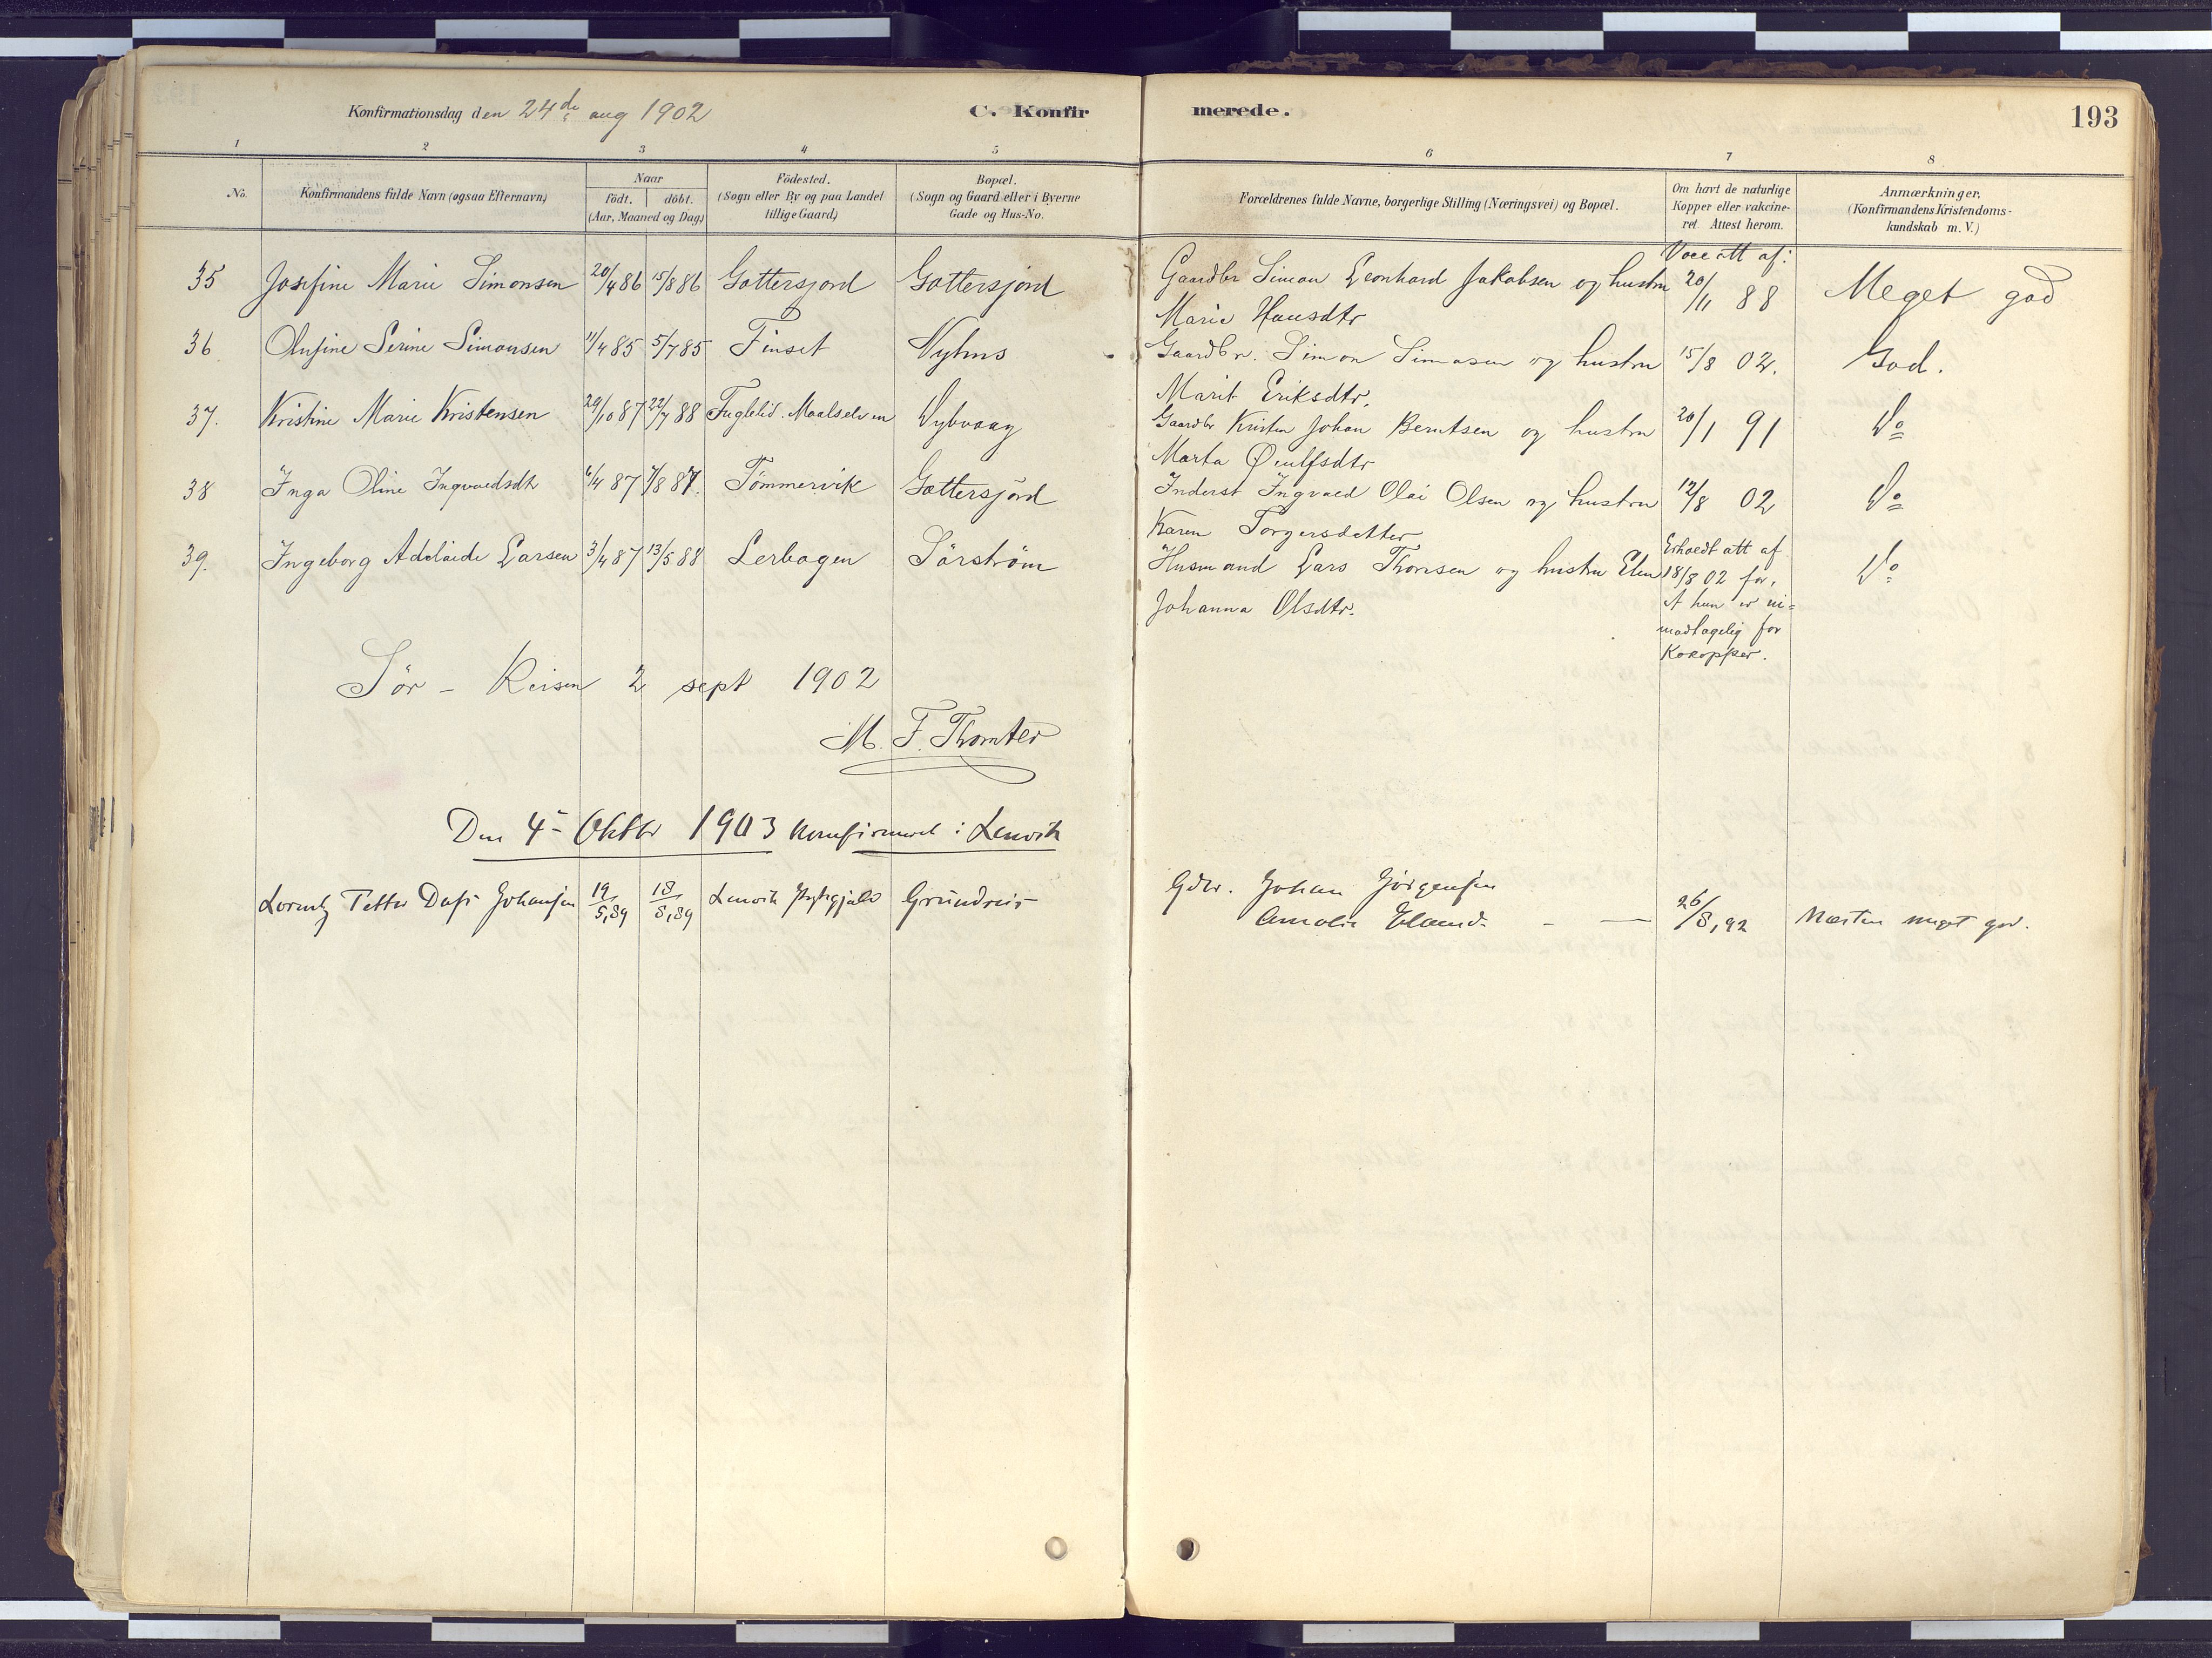 193
Konfirmationsdag den 24de aug 1902
C. Konfirmerede.
1 2 3 4 5 6 7 8
No.
Konfirmandens fulde Navn (ogsaa Efternavn)
Naar
födt. döbt.
(Aar, Maaned og Dag)
Födested.
(Sogn eller By og paa Landet
tillige Gaard)
Bopæl.
(Sogn og Gaard eller i Byerne
Gade og Hus-No.
Forældrenes fulde Navne, borgerlige Stilling (Næringsvei) og Bopæl.
Om havt de naturlige
Kopper eller vakcine-
ret Attest herom.
Anmærkninger.
(Konfirmandens Kristendoms-
kundskab m. V.)
Vace att af:
35 Josefine Marie Simonsen 20/4 86 15/8 86 Gottersjord Gottersjord Gaardbr Simon Leonhard Jakobsen og hustru 20/11 88 Meget god
Marie Hansdtr
36 Olufine Serine Simonsen 11/4 85 5/7 85 Finset Nyhus Gaardbr. Simon Simonsen og hustru 15/8 02. God.
Marit Eriksdtr.
37. Kristine Marie Kristensen 29/10 87 22/7 88 Fuglelid. Maalselven Nybvaag Gaardbr Kristen Johan Berntsen og hustru 20/1 91 Do
Marta Ørulfsdtr
38 Inga Oline Ingvaldsdtr 6/4 87 7/8 87. Tömmervik Gottersjord Inderst Ingvald Olai Olsen og hustru 12/8 02 Do
Karen Torgersdatter
39. Ingeborg Adelaide Larsen 3/4 87 13/5 88 Lerbogen Sörström Husmand Lars Thorisen og hustru Elen Do
Johanna Olsdtr.
Erholdt att af
18/8 02 for,
At hun er ui=
modtagelig for
Kokopper.
Sör - Reisen 2 sept 1902
M. F. Thomter
Den 4- Oktbr 1903 konfirmeret i Lenvik
Lorentz Petter Dass Johansen 19/5,89 18/8,89 Lenvik Prestegjeld Grundreis Gdbr. Johan Jörgensen
Amalie Eland: - — 26/8,92 Næsten meget god.